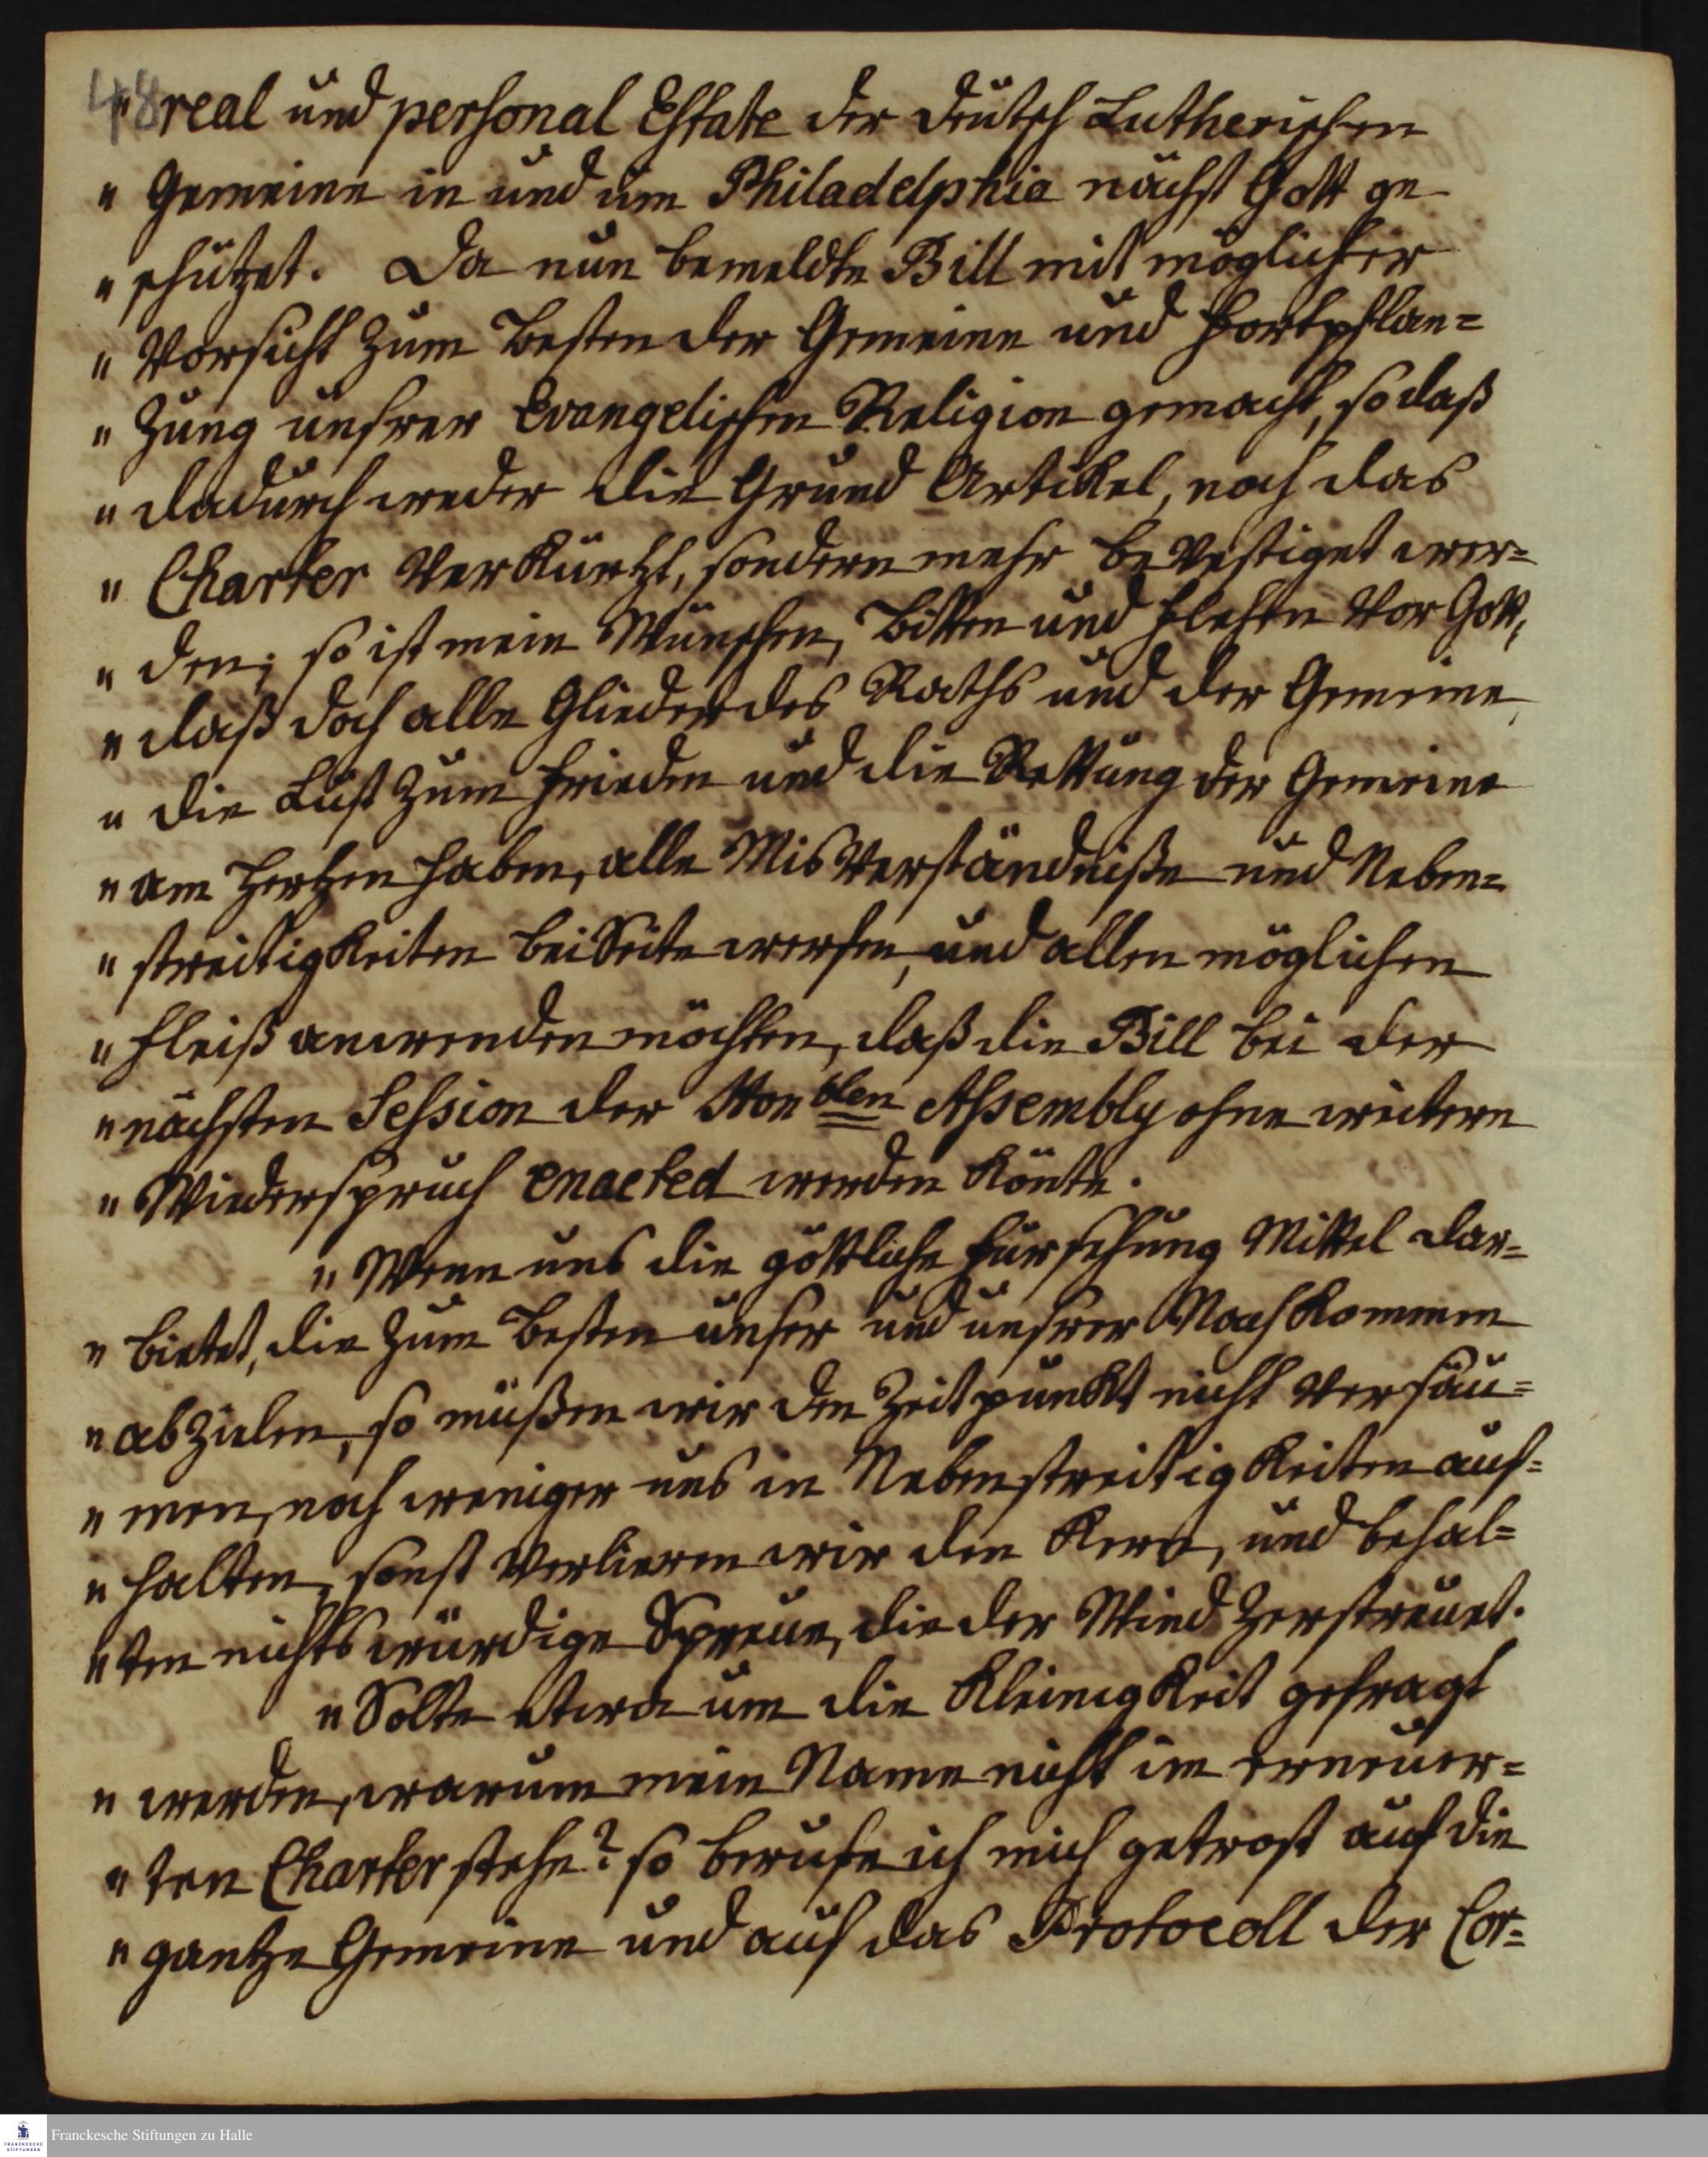 48
" real und personal Estate der deutsch Lutherischen
" Gemeine in und um Philadelphia nächst Gott ge-
" schützet. Da nun bemeldte Bill mit möglichster
" Vorsicht zum Besten der Gemeine und Fortpflan=
" zung unsrer Evangelischen Religion gemacht, so daß
" dadurch weder die Grund Artikel, noch das
" Charter verkürtzt, sondern mehr bevestiget wer=
" den; so ist mein Wünschen, Bitten und Flehen vor Gott,
" daß doch alle Glieder des Raths und der Gemeine,
" die Lust zum Frieden und die Rettung der Gemeine
" am Hertzen haben, alle Misverständniße und Neben=
" streitigkeiten bei Seite werfen, und allen möglichen
" Fleiß anwenden möchten, daß die Bill bei der
" nächsten Session der Honblen Assembly ohne weitern
" Wiederspruch enacted werden könte.
" Wenn uns die göttliche Fürsehung Mittel dar=
" bietet, die zum Besten unser und unsrer Nachkommen
" abzielen, so müßen wir den Zeitpunkt nicht versäu=
" men, noch weniger uns in Nebenstreitigkeiten auf=
" halten, sonst verlieren wir den Kern, und behal=
" ten nichtswürdige Spreue, die der Wind zerstreuet.
" Solte etwa um die Kleinigkeit gefragt
" werden, warum mein Name nicht im erneuer=
" ten Charter stehe? so berufe ich mich getrost auf die
" gantze Gemeine und auf das Protocoll der Cor=
Franckesche Stiftungen zu Halle